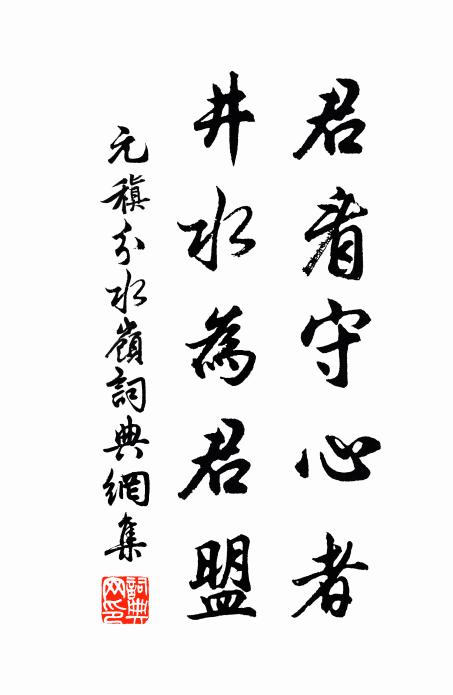 君看守心者
井水為君盟
元稹分水嶺詞典網集
詞典網印